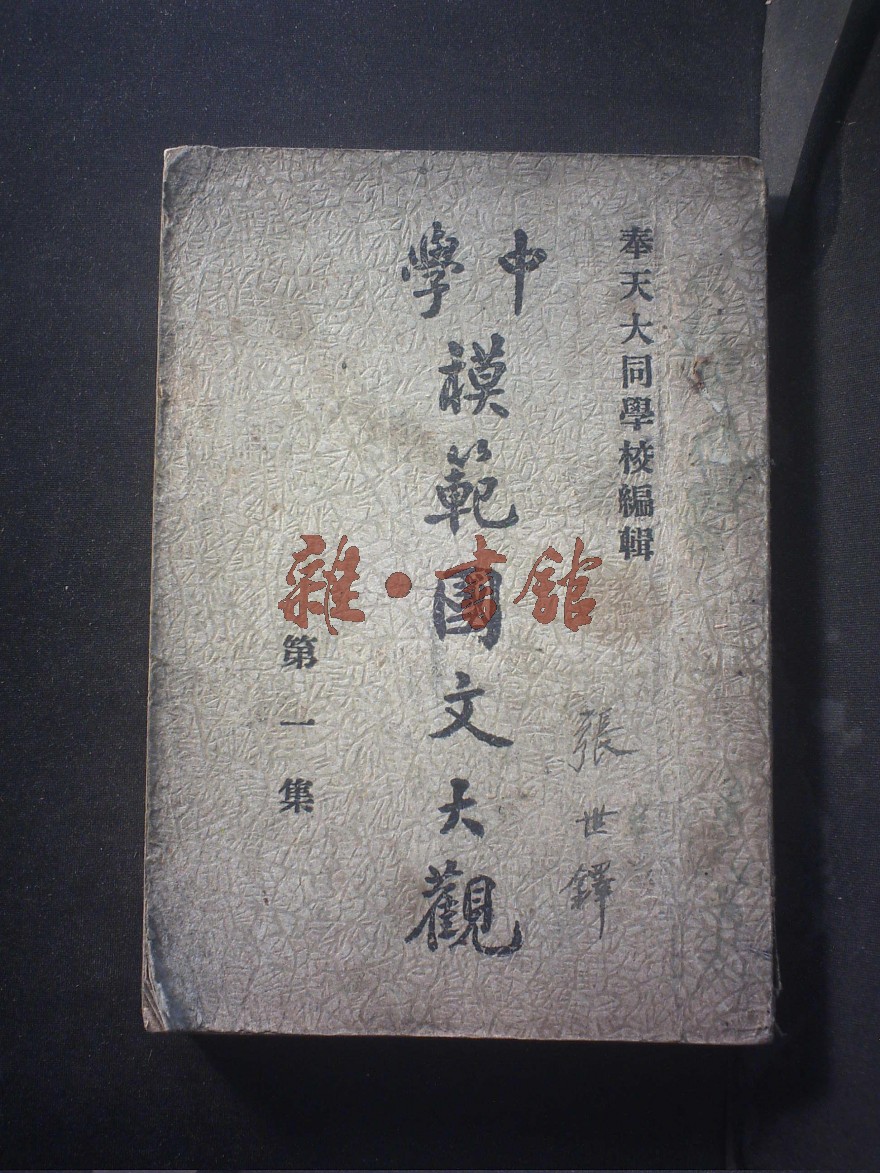 奉天大同學校編輯
中學
模範國文大觀
第一集
張世鐸
雜·書館